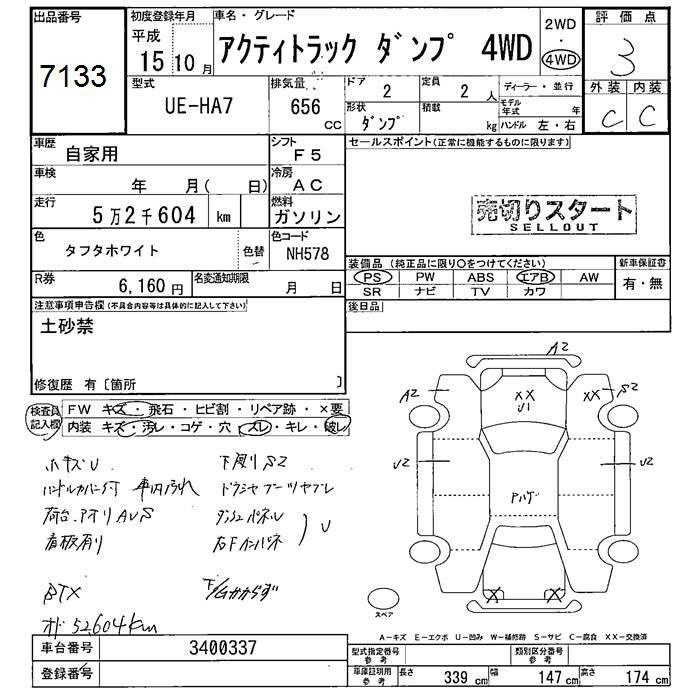 出品番号
7133
初度登録年月
平成
15 10月
車名・グレード
アクティトラック ダンプ 4WD
2WD
・
4WD
評価点
3
外装 内装
C C
型式
UE-HA7
排気量
656
CC
ドア
2
定員
2 人
形状
ダンプ
積載
kg
ディーラー・並行
モデル年式 年
ハンドル 左・右
車歴
自家用
シフト
F5
車検
年 月( 日)
冷房
AC
走行
5万2千604 km
燃料
ガソリン
色
タフタホワイト
色替
色コード
NH578
R券
6,160円
名変通知期限
月 日
セールスポイント(正常に機能するものに限ります)
売切りスタート
SELLOUT
装備品(純正品に限り○をつけてください)
PS PW ABS エアB AW
SR ナビ TV カワ
新車保証書
有・無
後日品
注意事項申告欄(不具合内容等は具体的に記入して下さい)
土砂禁
修復歴 有〔箇所 〕
検査員記入欄
FW キズ・飛石・ヒビ割・リペア跡・×要
内装 キズ・汚レ・コゲ・穴・スレ・キレ・破レ
小キズU
ハンドルカバー付 車内汚れ
荷台、アオリAUS
看板有り
下廻りS2
ドラシャブーツヤブレ
ダッシュパネル
右Fインパネ
U
BTX
オド 52,604km
A2
A2
XX
U1
XX
S2
U2
U2
アハゲ
X X
スペア
A−キズ E−エクボ U−凹み W−補修跡 S−サビ C−腐食 XX−交換済
車台番号
3400337
登録番号
型式指定番号
参考
類別区分番号
参考
車庫証明用
参考
長さ
339 cm
幅
147 cm
高さ
174 cm